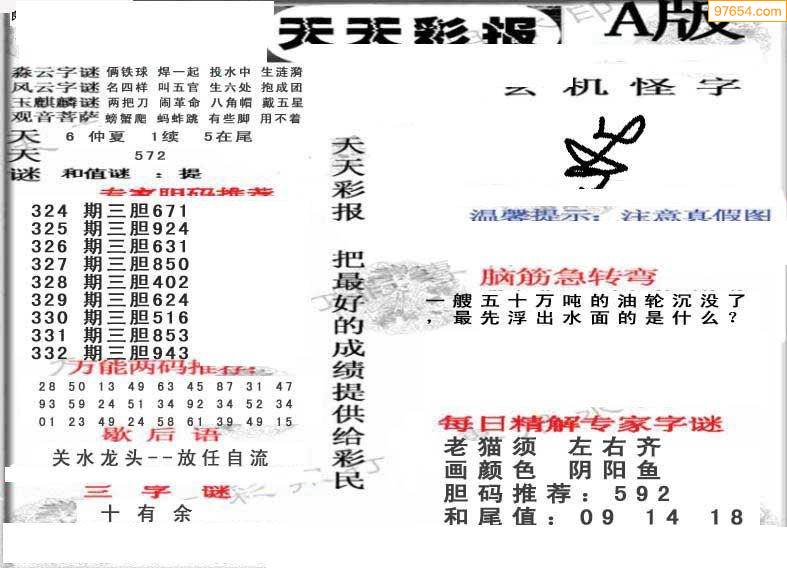 97654.com
天天彩报
A版
淼云字谜 俩铁球 焊一起 投水中 生涟漪
风云字谜 名四样 叫五官 生六处 抱成团
玉麒麟谜 两把刀 闹革命 八角帽 戴五星
观音菩萨 螃蟹爬 蚂蚱跳 有些脚 用不着
天 6 仲夏 1续 5在尾
天 572
谜 和值谜 : 提
专家胆码推荐
324 期三胆671
325 期三胆924
326 期三胆631
327 期三胆850
328 期三胆402
329 期三胆624
330 期三胆516
331 期三胆853
332 期三胆943
万能两码推荐:
28 50 13 49 63 45 87 31 47
93 59 24 51 34 92 34 52 34
01 23 49 24 58 61 39 49 15
歇后语
关水龙头--放任自流
三字谜
十有余
天天彩报 把最好的成绩提供给彩民
玄机怪字
温馨提示: 注意真假图
脑筋急转弯
一艘五十万吨的油轮沉没了
，最先浮出水面的是什么？
每日精解专家字谜
老猫须 左右齐
画颜色 阴阳鱼
胆码推荐: 592
和尾值: 09 14 18